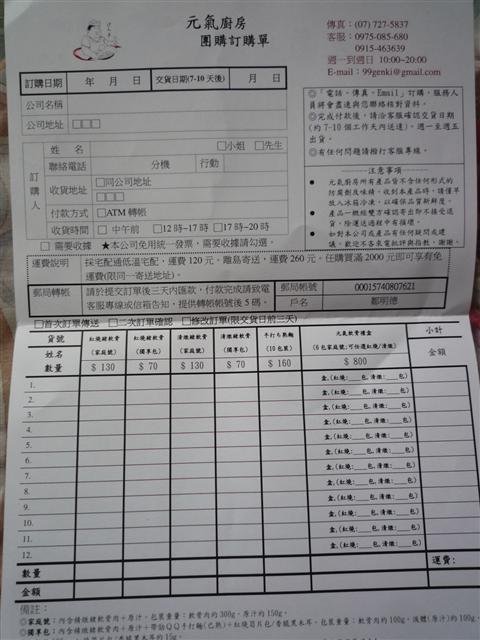 元氣廚房
團購訂購單
傳真：(07) 727-5837
客服：0975-085-680
0915-463639
週一到週日 10:00~20:00
E-mail：99genki@gmail.com
訂購日期 年 月 日 交貨日期(7-10天後) 月 日
公司名稱
公司地址 □□□
訂購人
姓 名 □小姐 □先生
聯絡電話 分機 行動
收貨地址 □同公司地址
□□□
付款方式 □ATM 轉帳
收貨時間 □ 中午前 □12時~17時 □17時~20時
□ 需要收據 ★本公司免用統一發票，需收據請勾選。
◎「電話、傳真、Email」訂購，服務人
員將會盡速與您聯絡核對資料。
◎完成付款後，請洽客服確認交貨日期
(約7-10個工作天內送達)，週一至週五
出貨。
◎有任何問題請撥打客服專線。
注意事項
● 元氣廚房所有產品皆不含任何形式的
防腐劑及味精，收到本產品時，請儘早
放入冰箱冷凍，以確保品質新鮮度。
● 產品一經經雙方確認寄出即不接受退
貨，除運送過程中有損壞。
● 如對本公司或產品有任何疑問或建
議，歡迎不吝來電批評與指教，謝謝。
運費說明 採宅配通低溫宅配，運費 120元，離島寄送，運費 260元，任購買滿 2000元即可享有免
運費(限同一寄送地址)。
郵局轉帳 請於提交訂單後三天內匯款，付款完成請致電
客服專線或信箱告知，提供轉帳帳號後5碼。
郵局帳號 00015740807621
戶名 鄒明德
□首次訂單傳送 □二次訂單確認 □修改訂單(限交貨日前三天)
貨號 姓名 數量
紅燒豬軟骨 (家庭號) $ 130
紅燒豬軟骨 (獨享包) $ 70
清燉豬軟骨 (家庭號) $ 130
清燉豬軟骨 (獨享包) $ 70
手打ち熟麵 (10包裝) $ 160
元氣軟骨禮盒 (6包家庭號;可任選紅燒/清燉) $ 800
小計
金額
1. 盒,(紅燒:___包,清燉:___包)
2. 盒,(紅燒:___包,清燉:___包)
3. 盒,(紅燒:___包,清燉:___包)
4. 盒,(紅燒:___包,清燉:___包)
5. 盒,(紅燒:___包,清燉:___包)
6. 盒,(紅燒:___包,清燉:___包)
7. 盒,(紅燒:___包,清燉:___包)
8. 盒,(紅燒:___包,清燉:___包)
9. 盒,(紅燒:___包,清燉:___包)
10. 盒,(紅燒:___包,清燉:___包)
11. 盒,(紅燒:___包,清燉:___包)
12. 盒,(紅燒:___包,清燉:___包)
數量 運費:
金額
備註：
◎家庭號：內含精燉豬軟骨肉＋原汁，包裝重量：軟骨肉約300g，原汁約150g。
◎獨享包：內含精燉豬軟骨肉＋原汁＋帶勁QQ手打麵(已熟)＋紅燒筍片包/香腿黑木耳，包裝重量：軟骨肉約100g，湯體(原汁)約100g